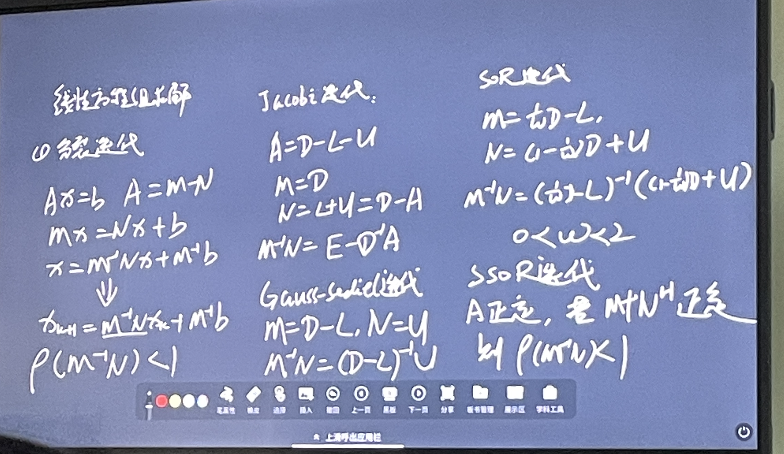 线性方程组求解
① 分裂迭代
Ax=b A=M-N
Mx=Nx+b
x=M⁻¹Nx+M⁻¹b
⇓
xₖ₊₁=M⁻¹Nxₖ+M⁻¹b
ρ(M⁻¹N)<1
Jacobi迭代:
A=D-L-U
M=D
N=L+U=D-A
M⁻¹N=E-D⁻¹A
Gauss-Seidel迭代
M=D-L, N=U
M⁻¹N=(D-L)⁻¹U
SOR迭代
M=1/ω D-L,
N=(1-1/ω)D+U
M⁻¹N=(1/ω D-L)⁻¹((1-1/ω)D+U)
0<ω<2
SSOR迭代
A正定, 若 M+Nᴴ正定
则 ρ(M⁻¹N)<1
笔属性 橡皮 选择 插入 撤回 上一页 黑板 下一页 分享 板书管理 展示区 学科工具
上滑呼出应用栏